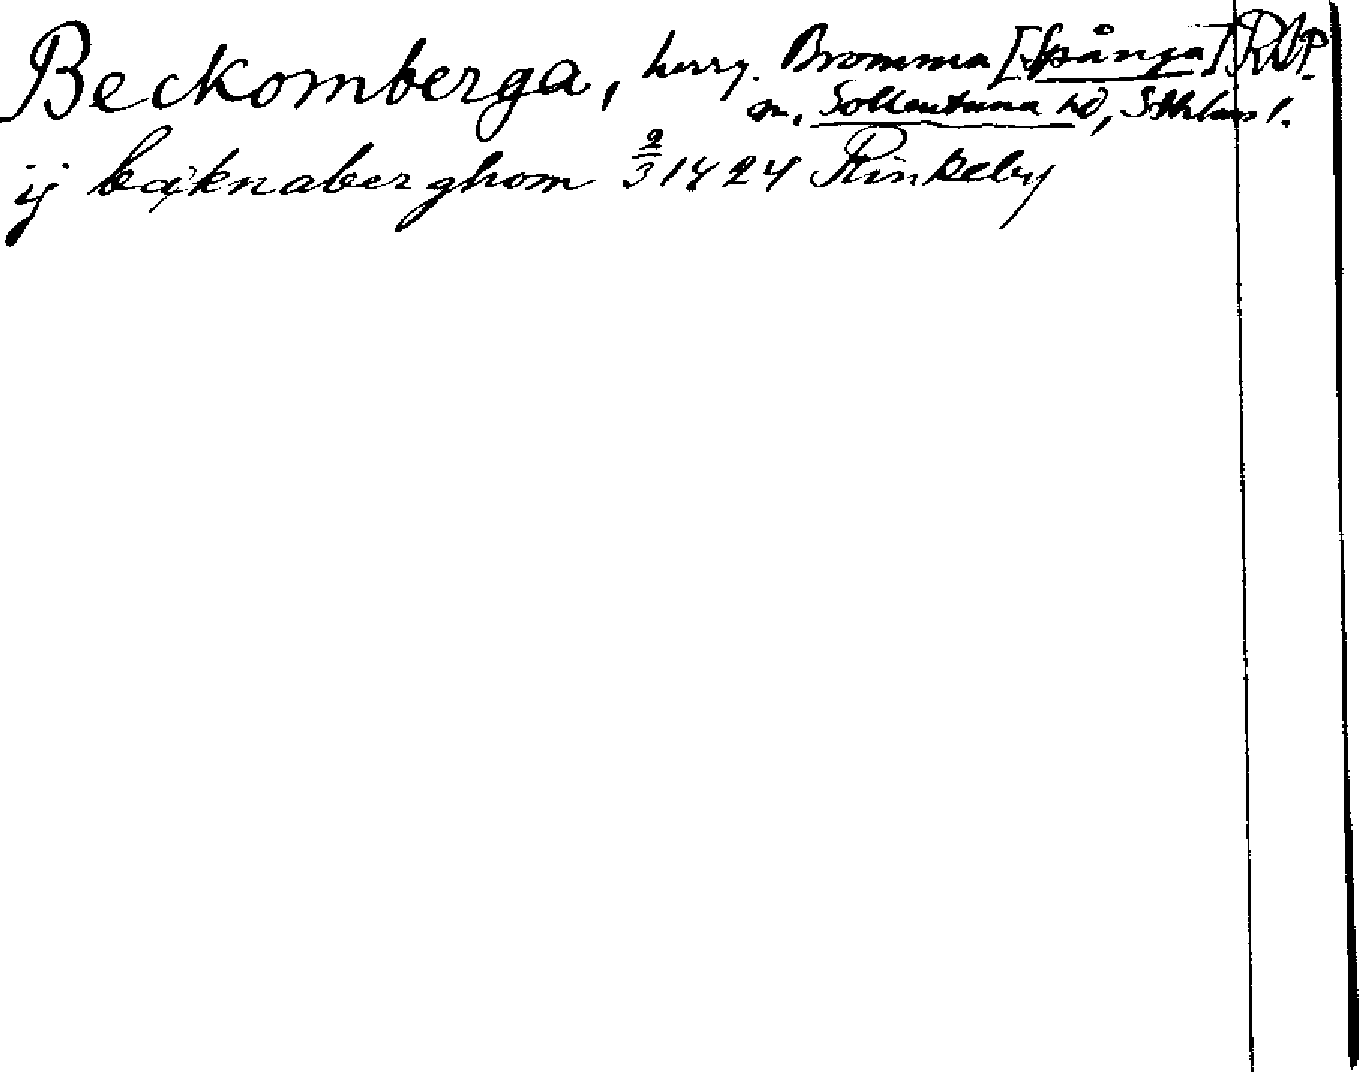 Beckomberga, herrg. Bromma [Spånga] RAP.
sn, Sollentuna hd, Sthlms l.
ij bæknaberghom 2/3 1424 Rinkeby